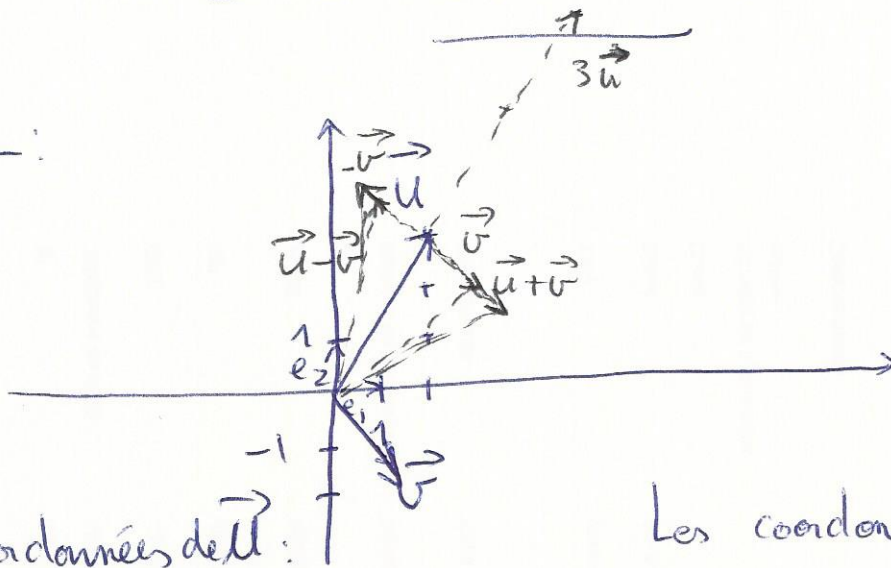 3u⃗
-:
-v⃗
u⃗
u⃗-v⃗
v⃗
u⃗+v⃗
1
e₂
e₁
1
-1
v⃗
ordonnées de u⃗:
Les coordon